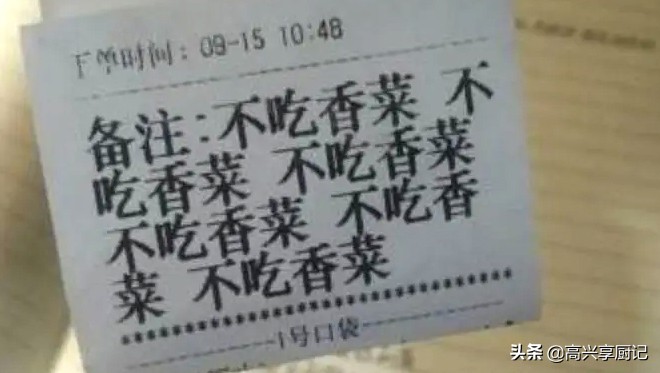 下单时间：09-15 10:48
备注:不吃香菜 不
吃香菜 不吃香菜
不吃香菜 不吃香
菜 不吃香菜
1号口袋
头条 @高兴享厨记